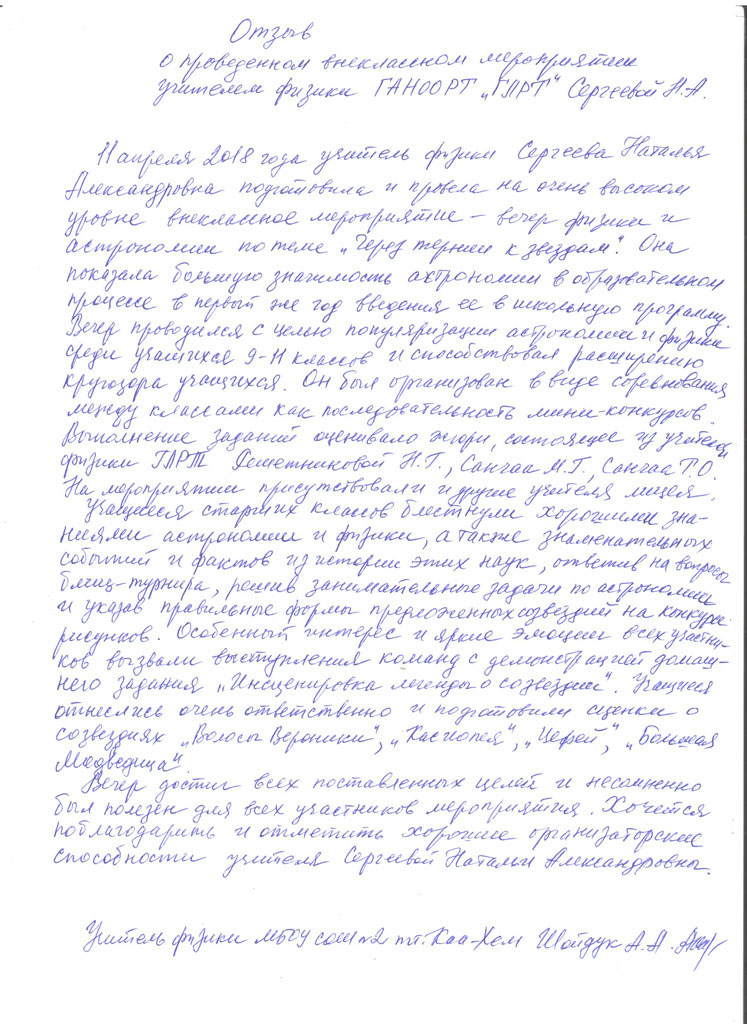 Отзыв
о проведенном внеклассном мероприятии
учителем физики ГАНООРТ „ГЛРТ" Сергеевой Н.А.
11 апреля 2018 года учитель физики Сергеева Наталья
Александровна подготовила и провела на очень высоком
уровне внеклассное мероприятие – вечер физики и
астрономии по теме „Через тернии к звездам". Она
показала большую значимость астрономии в образовательном
процессе в первый же год введения ее в школьную программу.
Вечер проводился с целью популяризации астрономии и физики
среди учащихся 9-11 классов и способствовал расширению
кругозора учащихся. Он был организован в виде соревнования
между классами как последовательность мини-конкурсов.
Выполнение заданий оценивало жюри, состоящее из учителей
физики ГЛРТ Решетниковой Н.Г., Санчаа М.Г., Санчаа Т.О.
На мероприятии присутствовали и другие учителя лицея.
Учащиеся старших классов блеснули хорошими зна-
ниями астрономии и физики, а также знаменательных
событий и фактов из истории этих наук, ответив на вопросы
блиц-турнира, решив занимательные задачи по астрономии
и указав правильные формы предложенных созвездий на конкурсе
рисунков. Особенный интерес и яркие эмоции всех участни-
ков вызвали выступления команд с демонстрацией домаш-
него задания „Инсценировка легенды о созвездии". Учащиеся
отнеслись очень ответственно и подготовили сценки о
созвездиях „Волосы Вероники", „Кассиопея", „Цефей", „Большая
Медведица".
Вечер достиг всех поставленных целей и несомненно
был полезен для всех участников мероприятия. Хочется
поблагодарить и отметить хорошие организаторские
способности учителя Сергеевой Натальи Александровны.
Учитель физики МБОУ СОШ №2 пгт. Каа-Хем Шойдук А.А.